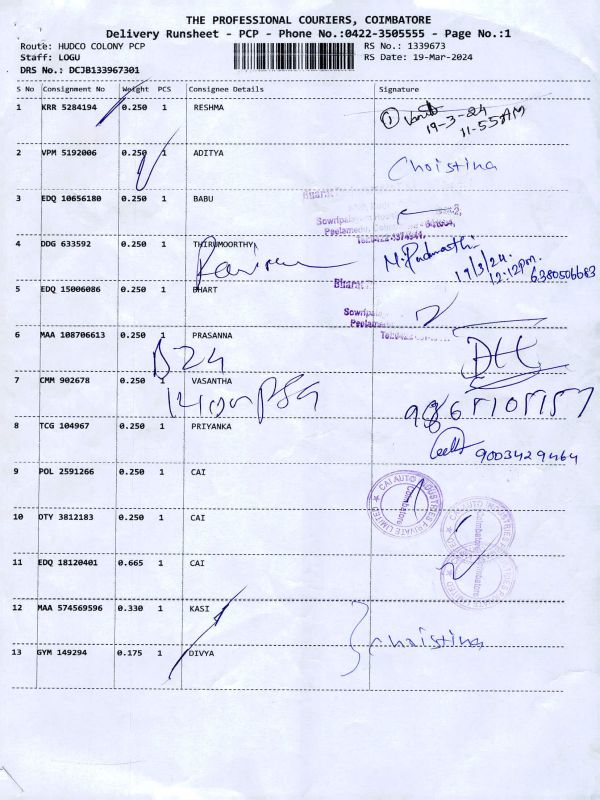 THE PROFESSIONAL COURIERS, COIMBATORE
Delivery Runsheet - PCP - Phone No.:0422-3505555 - Page No.:1
Route: HUDCO COLONY PCP RS No.: 1339673
Staff: LOGU RS Date: 19-Mar-2024
DRS No.: DCJB133967301
S No Consignment No Weight PCS Consignee Details Signature
1 KRR 5284194 0.250 1 RESHMA
19-3-24
11-55AM
2 VPM 5192006 0.250 1 ADITYA Christina
3 EDQ 10656180 0.250 1 BABU
4 DDG 633592 0.250 1 THIRUMOORTHY
19/3/24.
12:12pm.
6380506683
5 EDQ 15006086 0.250 1 BHART
6 MAA 108706613 0.250 1 PRASANNA
7 CMM 902678 0.250 1 VASANTHA
8 TCG 104967 0.250 1 PRIYANKA
9003429464
9 POL 2591266 0.250 1 CAI
CAI AUTO INDUSTRIES PRIVATE LIMITED
Coimbatore
10 DTY 3812183 0.250 1 CAI
11 EDQ 18120401 0.665 1 CAI
12 MAA 574569596 0.330 1 KASI
Christina
13 GYM 149294 0.175 1 DIVYA